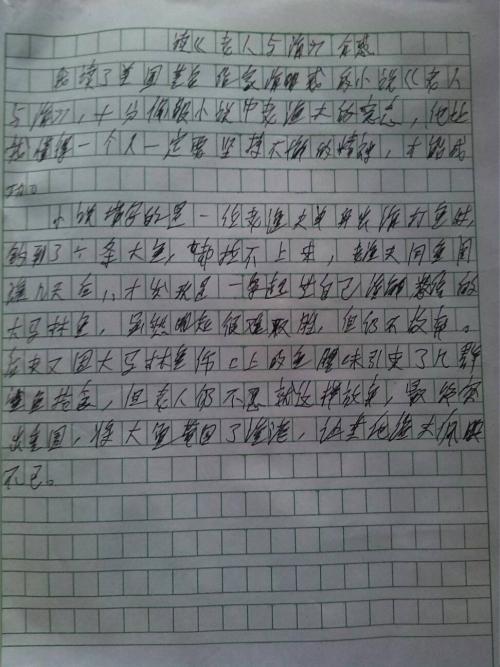 读《老人与海》有感
我读了美国著名作家海明威的小说《老人
与海》,十分佩服小说中老渔夫的意志,他让
我懂得一个人一定要坚持不懈的精神,才能成
功。
小说描写的是一位老渔夫单身出海打鱼时,
钓到了一条大鱼,却拉不上来,老渔夫同鱼周
旋几天后,才发现是一条超过自己渔船数倍的
大马林鱼,虽然明知很难取胜,但仍不放弃。
后来又因大马林鱼伤口上的鱼腥味引来了几群
鲨鱼抢食,但老人仍不愿就这样放弃,最终突
出重围,将大鱼带回了渔港,让其他渔夫佩服
不已。